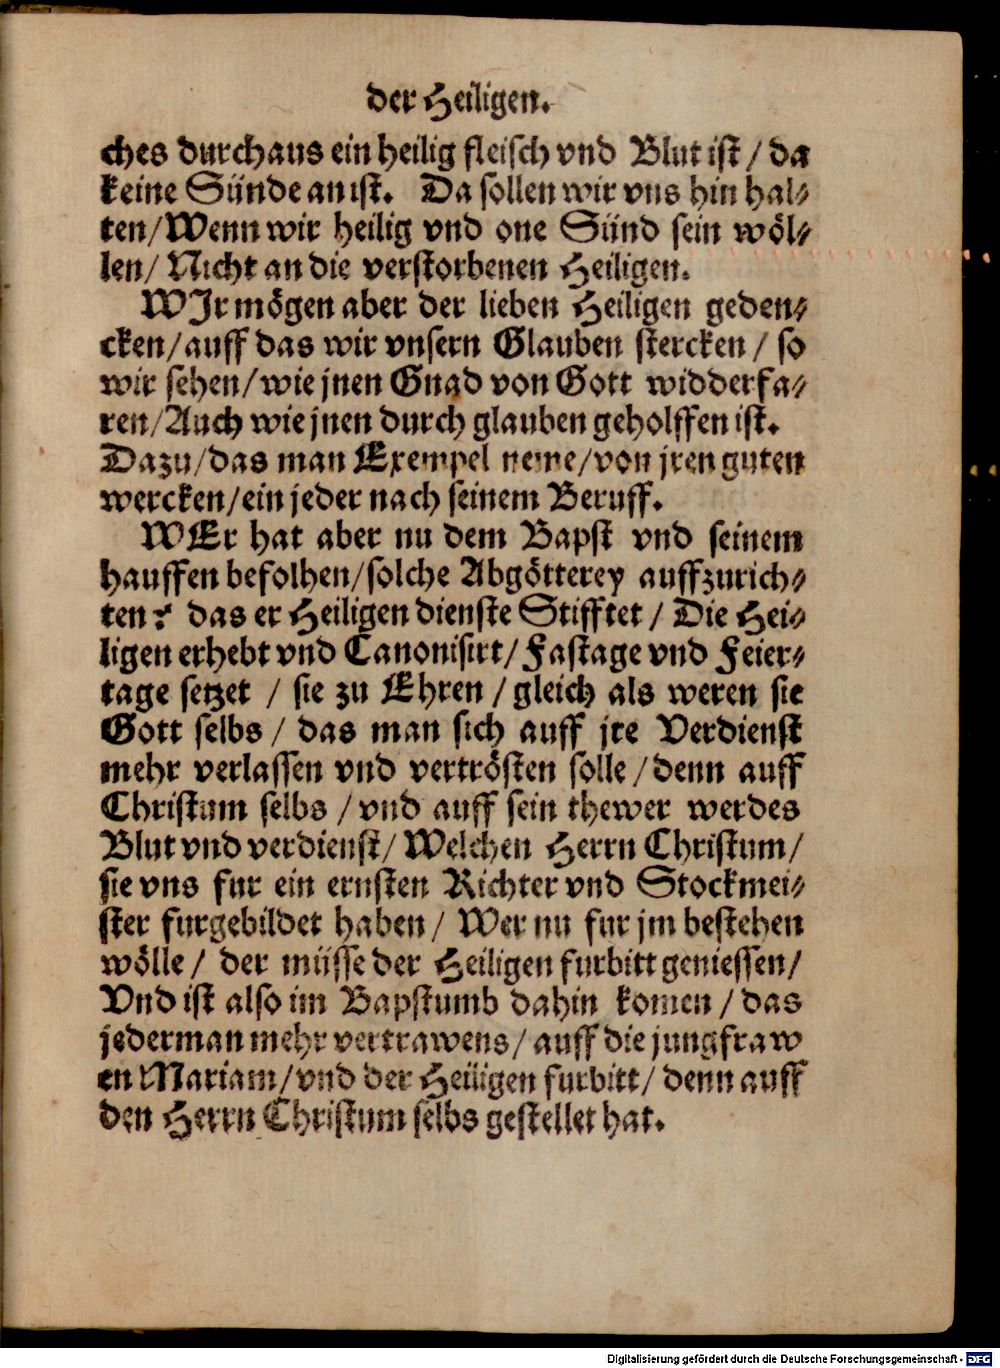 der Heiligen.
ches durchaus ein heilig fleisch vnd Blut ist / da
keine Sünde an ist. Da sollen wir vns hin hal⸗
ten/Wenn wir heilig vnd one Sünd sein wöl⸗
len/ Nicht an die verstorbenen Heiligen.
WJr mögen aber der lieben Heiligen geden⸗
cken/auff das wir vnsern Glauben stercken / so
wir sehen/wie jnen Gnad von Gott widderfa⸗
ren/Auch wie jnen durch glauben geholffen ist.
Dazu/das man Exempel neme/von jren guten
wercken/ein jeder nach seinem Beruff.
WEr hat aber nu dem Bapst vnd seinem
hauffen befolhen/solche Abgötterey auffzurich⸗
ten? das er Heiligen dienste Stifftet / Die Hei⸗
ligen erhebt vnd Canonisirt/ Fastage vnd Feier⸗
tage setzet / sie zu Ehren / gleich als weren sie
Gott selbs / das man sich auff jre Verdienst
mehr verlassen vnd vertrösten solle / denn auff
Christum selbs / vnd auff sein thewer werdes
Blut vnd verdienst/ Welchen Herrn Christum/
sie vns fur ein ernsten Richter vnd Stockmei⸗
ster furgebildet haben / Wer nu fur jm bestehen
wölle / der müsse der Heiligen furbitt geniessen/
Vnd ist also im Bapstumb dahin komen / das
jederman mehr vertrawens / auff die jungfraw
en Mariam/vnd der Heiligen furbitt/ denn auff
den Herrn Christum selbs gestellet hat.
Digitalisierung gefördert durch die Deutsche Forschungsgemeinschaft - DFG